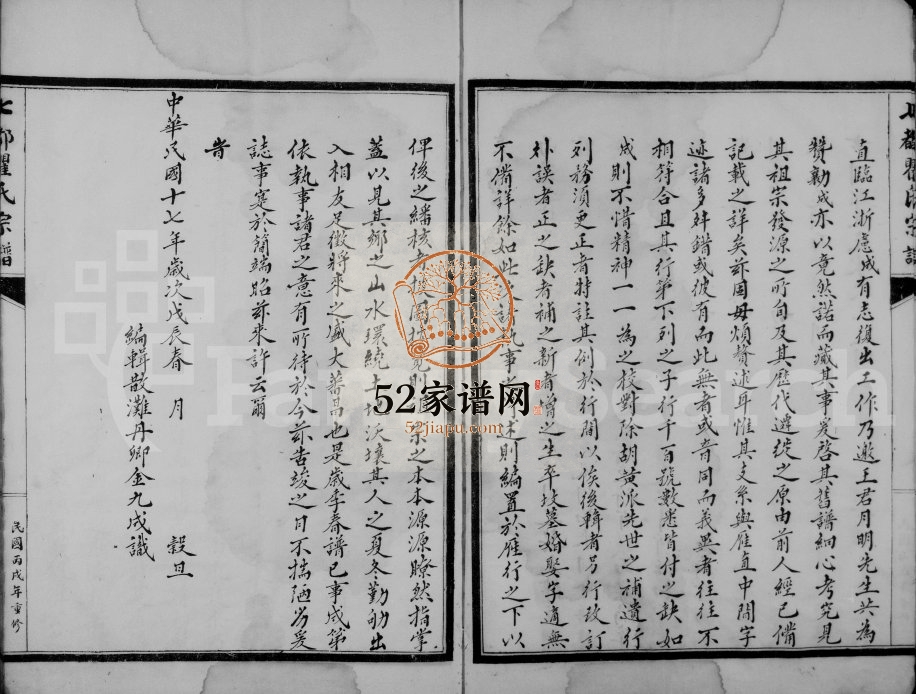 七都瞿氏宗譜
直臨江浙應咸有志復出工作乃邀王君月明先生共為
贊勷成亦以竟然諾而藏其事爰啓其舊譜細心考究見
其祖宗發源之所自及其歷代遷徙之原由前人經已備
記載之詳矣茲固毋煩贅述耳惟其支系與雁直中間字
迹諸多舛錯或彼有而此無者或音同而義異者往往不
相符合且其行第下列之子行千百號數悉皆付之缺如
成則不惜精神一一為之校對除胡黃派先世之補遺行
列務須更正者特註其例於行間以俟後輯者另行改訂
外誤者正之缺者補之新者增之生卒坟墓婚娶字適無
不備詳餘如此 事之 述則編置於雁行之下以
俾後之繙核 之本本源源瞭然指掌
蓋以見其鄉之山水環繞土 沃壤其人之夏冬勤劬出
入相友足徵將來之盛大蕃昌也是歲季春譜已事成第
依執事諸君之意有所待於今茲告竣之日不揣陋劣爰
誌事寔於簡端昭茲來許云爾
旹
中華民國十七年歲次戊辰春 月 穀旦
編輯散灘丹卿金九成識
七都瞿氏宗譜
民國丙戌年重修
52家谱网
52jiapu.com
FamilySearch